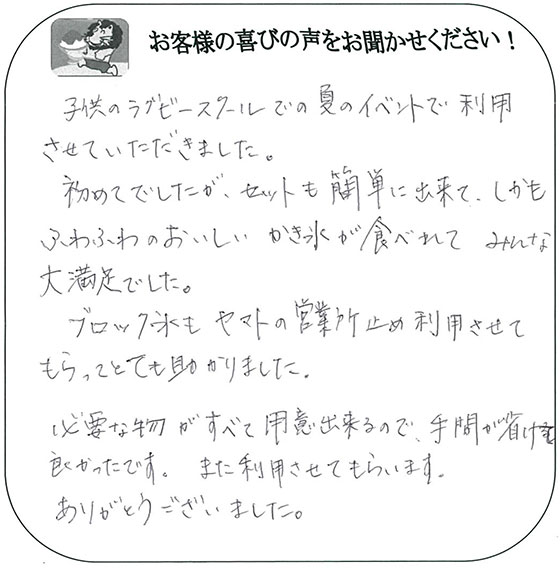 お客様の喜びの声をお聞かせください！
子供のラグビースクールでの夏のイベントで利用
させていただきました。
初めてでしたが、セットも簡単に出来て、しかも
ふわふわのおいしい かき氷が食べれて みんな
大満足でした。
ブロック氷も ヤマトの営業所止め利用させて
もらってとても助かりました。
必要な物がすべて用意出来るので、手間が省けて
良かったです。 また利用させてもらいます。
ありがとうございました。